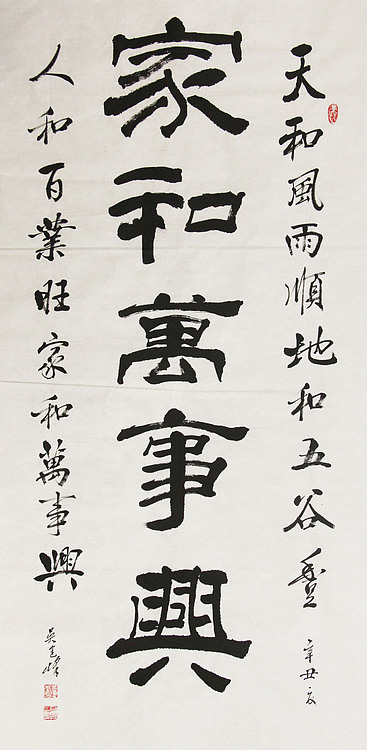 天和風雨順地和五谷豐
辛丑夏
家和萬事興
人和百業旺家和萬事興
吳